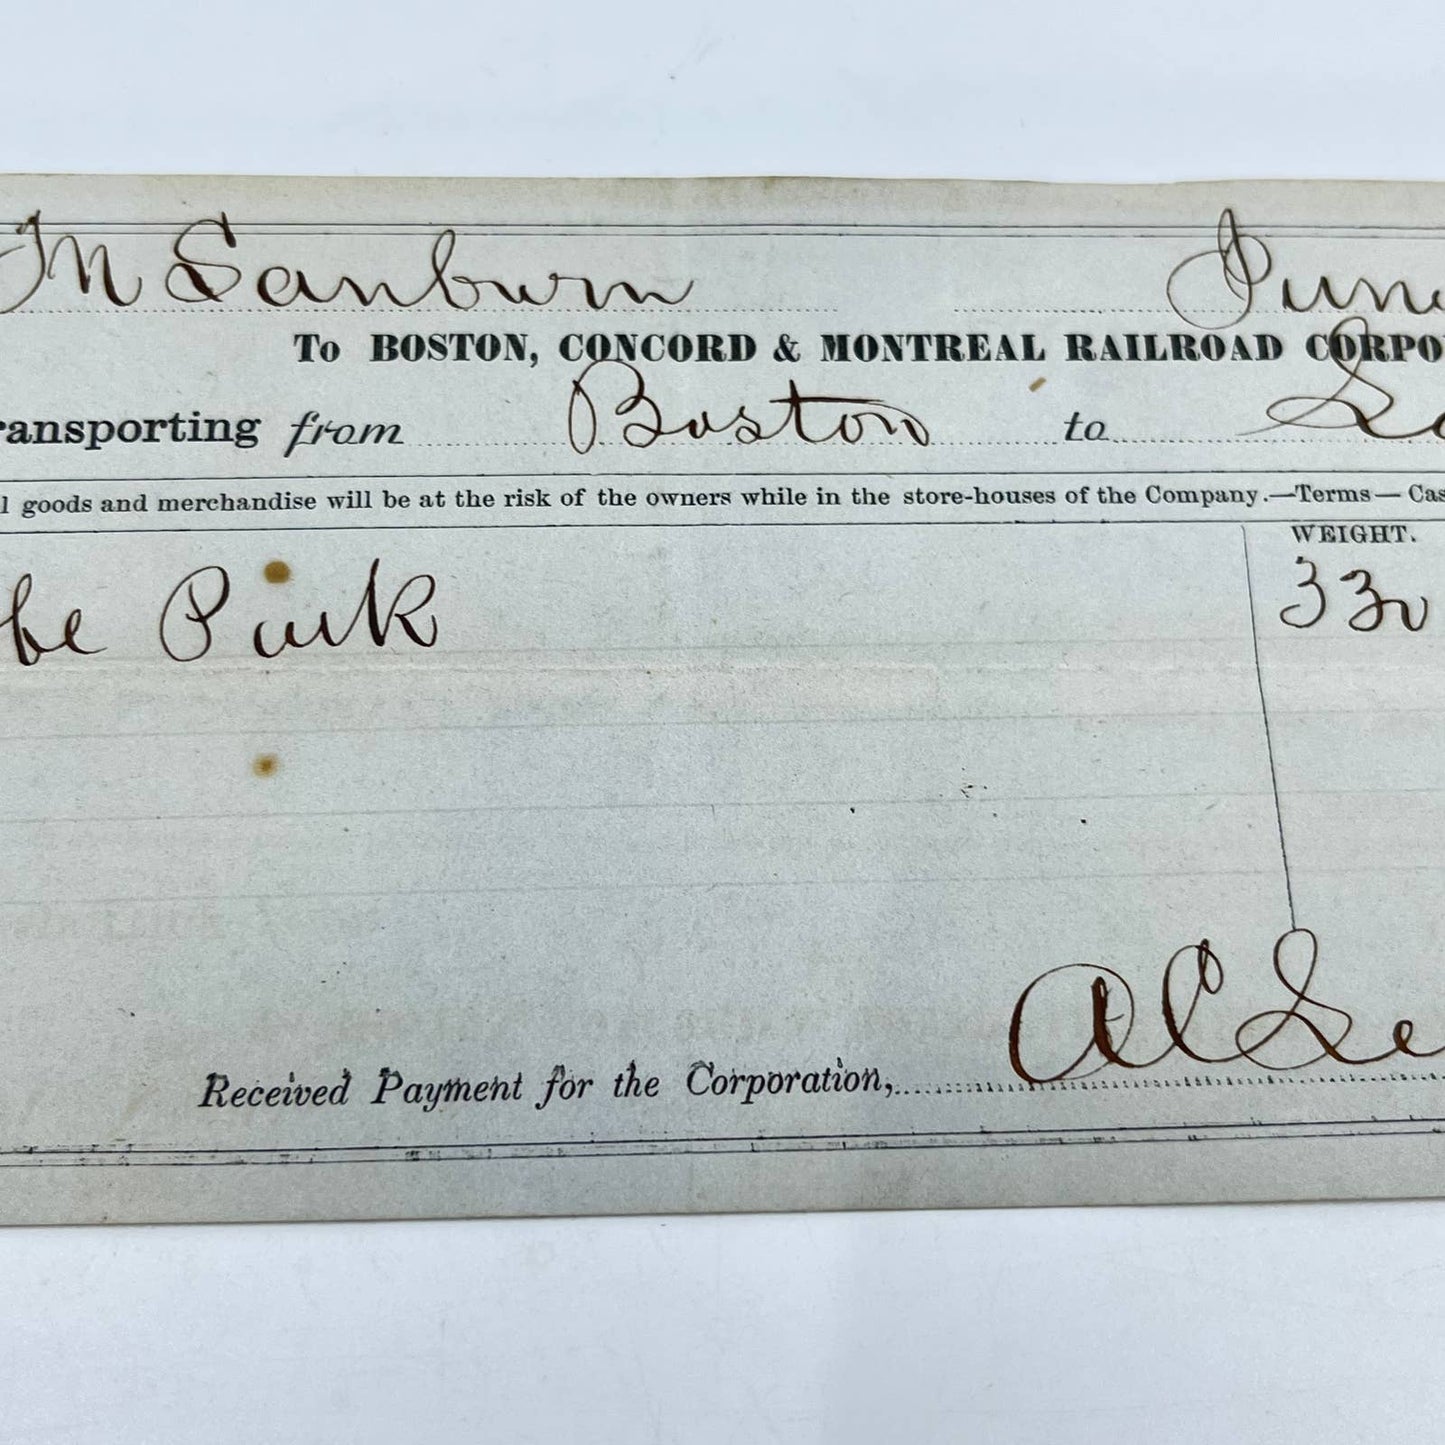 M Sanburn June
To BOSTON, CONCORD & MONTREAL RAILROAD CORPO
ransporting from Boston to
l goods and merchandise will be at the risk of the owners while in the store-houses of the Company.—Terms— Cas
WEIGHT.
330
Received Payment for the Corporation, A C